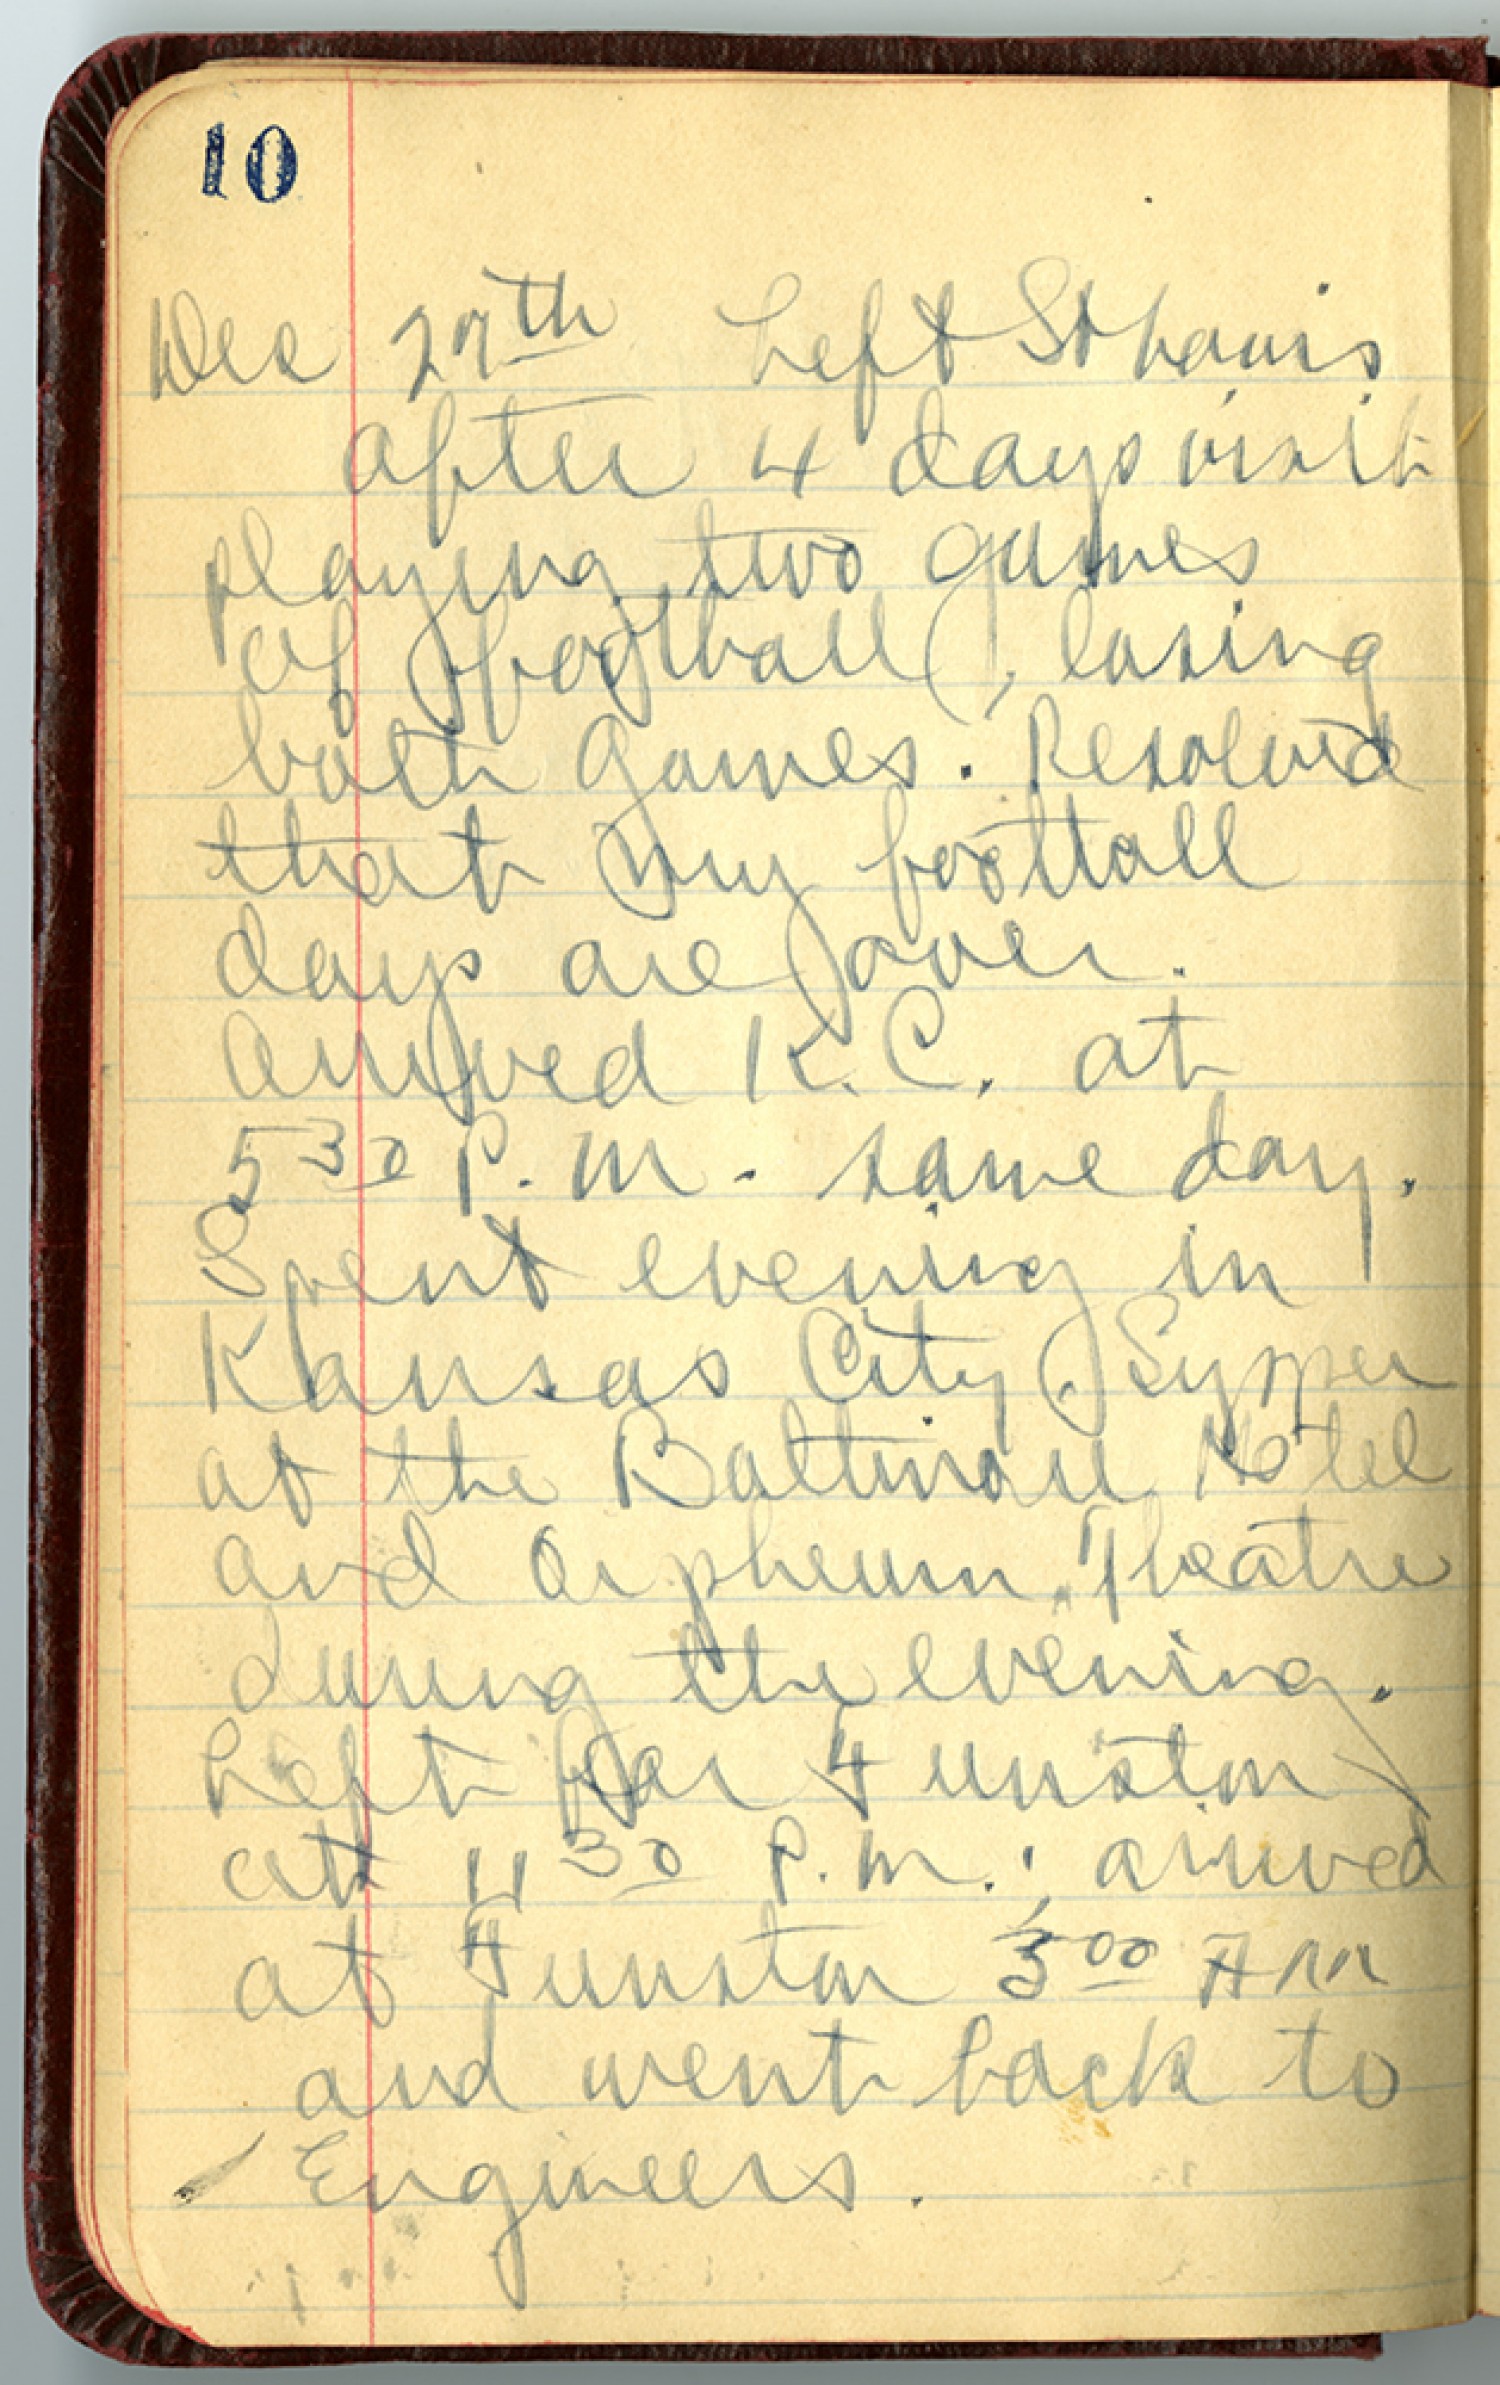 10
Dec 27th Left St Louis
after 4 days visit
playing two games
of football, losing
both games. Resolved
that my football
days are over.
Arrived K.C. at
5 30 P.M. same day.
Spent evening in
Kansas City. Supper
at the Baltimore Hotel
and Orpheum Theatre
during the evening.
Left for Funston
at 11 30 P.M.; arrived
at Funston 3 00 AM
and went back to
Engineers.